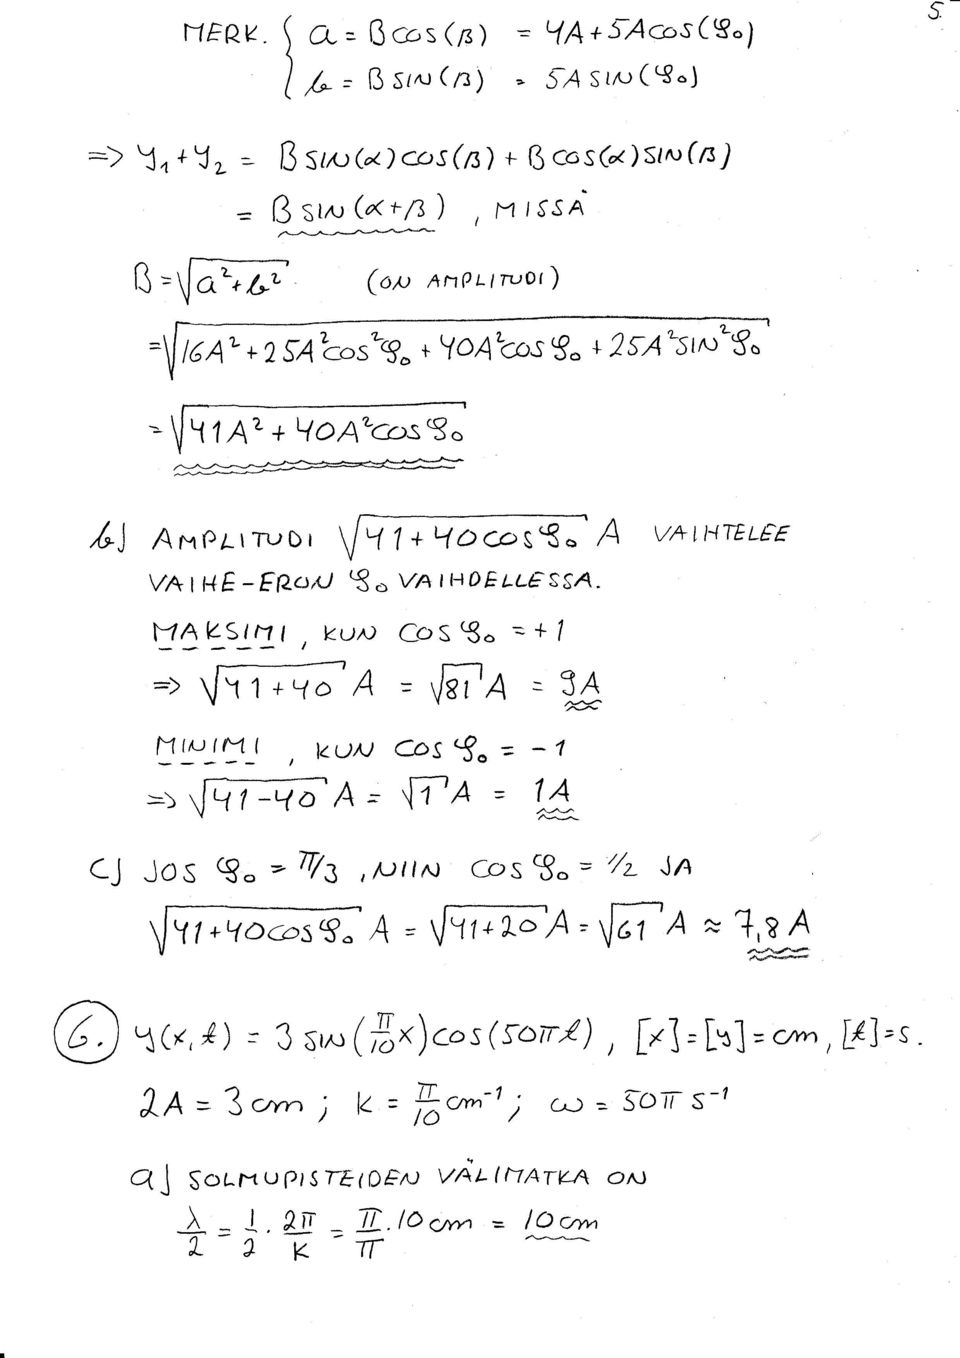 5.
MERK. { a = B cos(β) = 4A + 5A cos(φ₀)
b = B SIN(β) = 5A SIN(φ₀)
=> y₁ + y₂ = B SIN(α) cos(β) + B cos(α) SIN(β)
= B SIN(α + β) , MISSÄ
B = √(a² + b²) (ON AMPLITUDI)
= √(16A² + 25A² cos²φ₀ + 40A² cos φ₀ + 25A² SIN²φ₀)
= √(41A² + 40A² cos φ₀)
b) AMPLITUDI √(41 + 40 cos φ₀) A VAIHTELEE
VAIHE-ERON φ₀ VAIHDELLESSA.
MAKSIMI, KUN COS φ₀ = +1
=> √(41 + 40) A = √81 A = 9A
MINIMI, KUN COS φ₀ = -1
=> √(41-40) A = √1 A = 1A
c) JOS φ₀ = π/3, NIIN COS φ₀ = 1/2 JA
√(41 + 40 cos φ₀) A = √(41+20) A = √61 A ≈ 7,8 A
6. y(x,t) = 3 SIN(π/10 x) cos(50πt), [x]=[y]=cm, [t]=s.
2A = 3 cm ; k = π/10 cm⁻¹ ; ω = 50π s⁻¹
a) SOLMUPISTEIDEN VÄLIMATKA ON
λ/2 = 1/2 · 2π/K = π/π · 10 cm = 10 cm